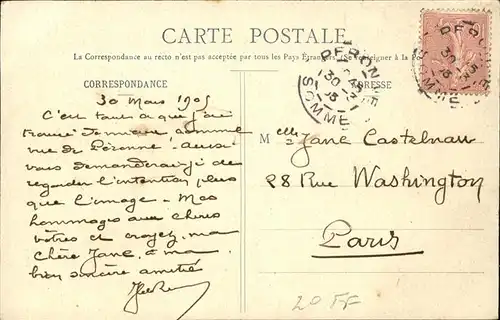 CARTE POSTALE
La Correspondance au recto n'est pas acceptée par tous les Pays Étrangers. (Se renseigner à la Po
CORRESPONDANCE
ADRESSE
PERONNE
30
SOMME
30 Mars 1905
C'est tout ce que j'ai
trouvé de mieux comme
vue de Péronne - aussi
vous demanderai-je de
regarder l'intention plus
que l'image - Mes
hommages aux chers
vôtres et croyez, ma
chère Jane, à ma
bien sincère amitié
M elle Jane Castelnau
28 Rue Washington
Paris
20 FF